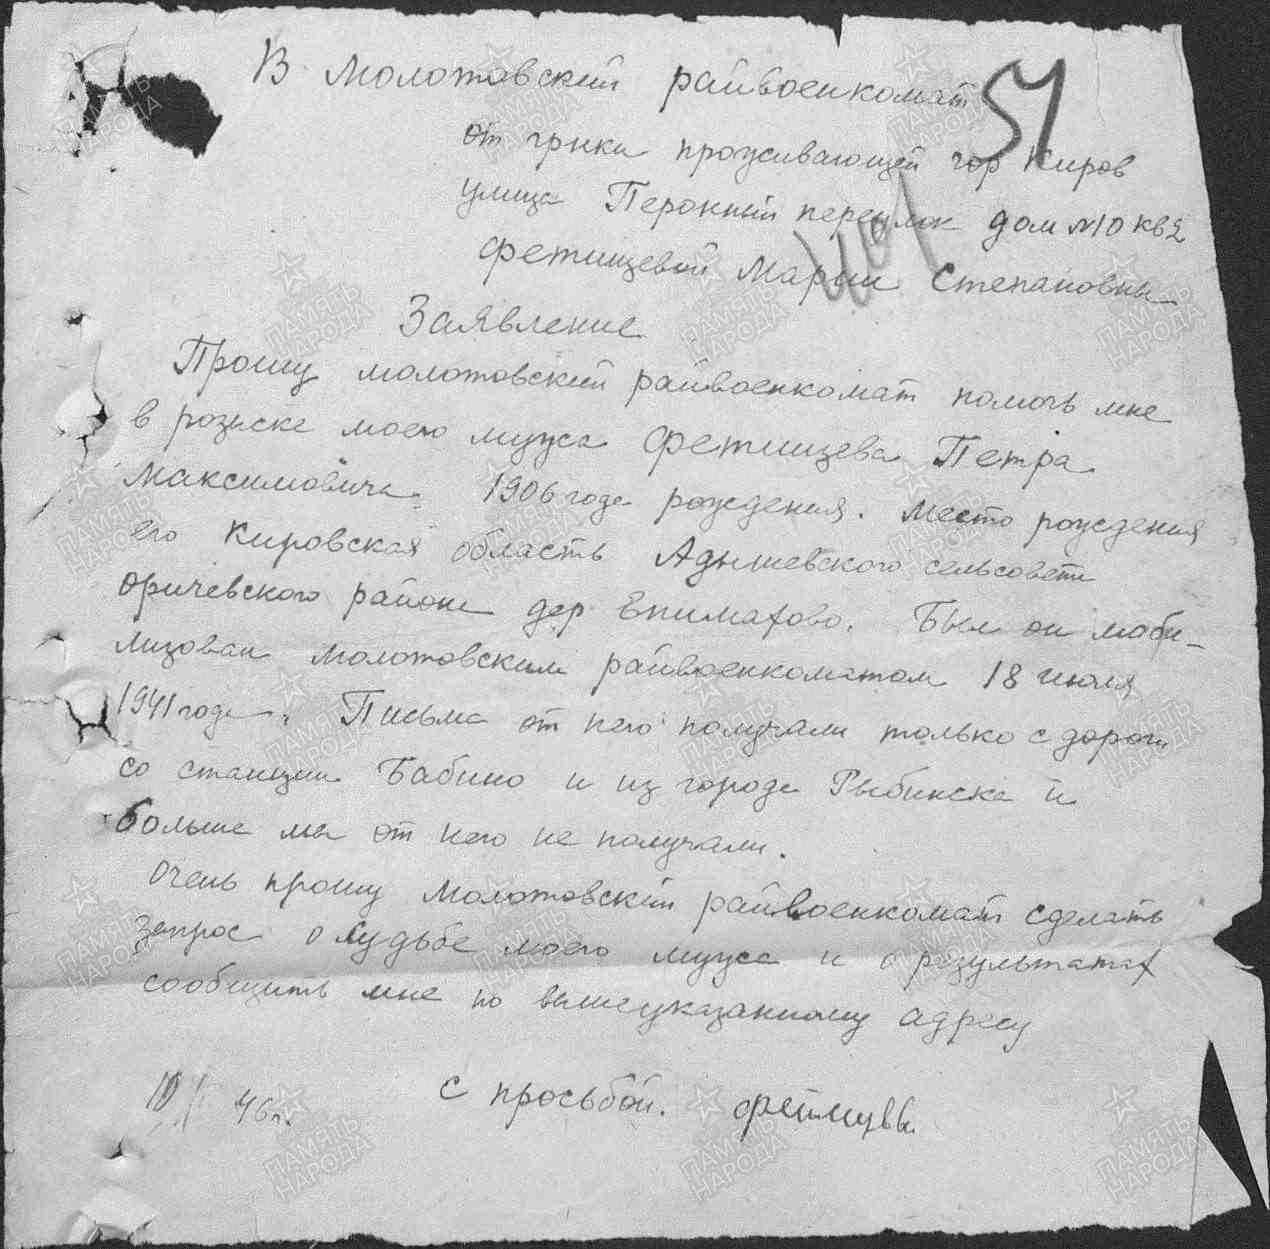 В Молотовский райвоенкомат
51
от гр-нки проживающей гор Киров
улица Перонный переулок дом №10 кв 2
Фетищевой Марьи Степановны
Заявление
Прошу молотовский райвоенкомат помочь мне
в розыске моего мужа Фетищева Петра
Максимовича. 1906 года рождения. Место рождения
его Кировская область Адышевского сельсовета
Оричевского района дер Епимахово. Был он моби-
лизован Молотовским райвоенкоматом 18 июля
1941 года. Письма от него получали только с дороги
со станции Бабино и из города Рыбинска и
больше мы от него не получали.
Очень прошу Молотовский райвоенкомат сделать
запрос о судьбе моего мужа и о результатах
сообщить мне по вышеуказанному адресу
46 г. с просьбой.
ПАМЯТЬ НАРОДА